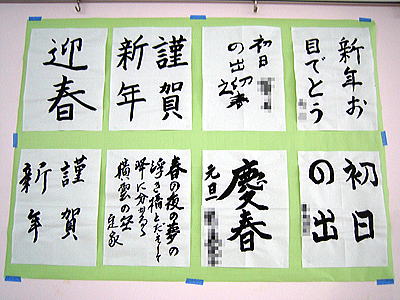 新年お
目でとう
初日
の出
謹賀
新年
迎春
初日
の出
慶春
元旦
春の夜の夢の
浮き橋とだえして
峰に分かるる
横雲の空
定家
謹賀
新年